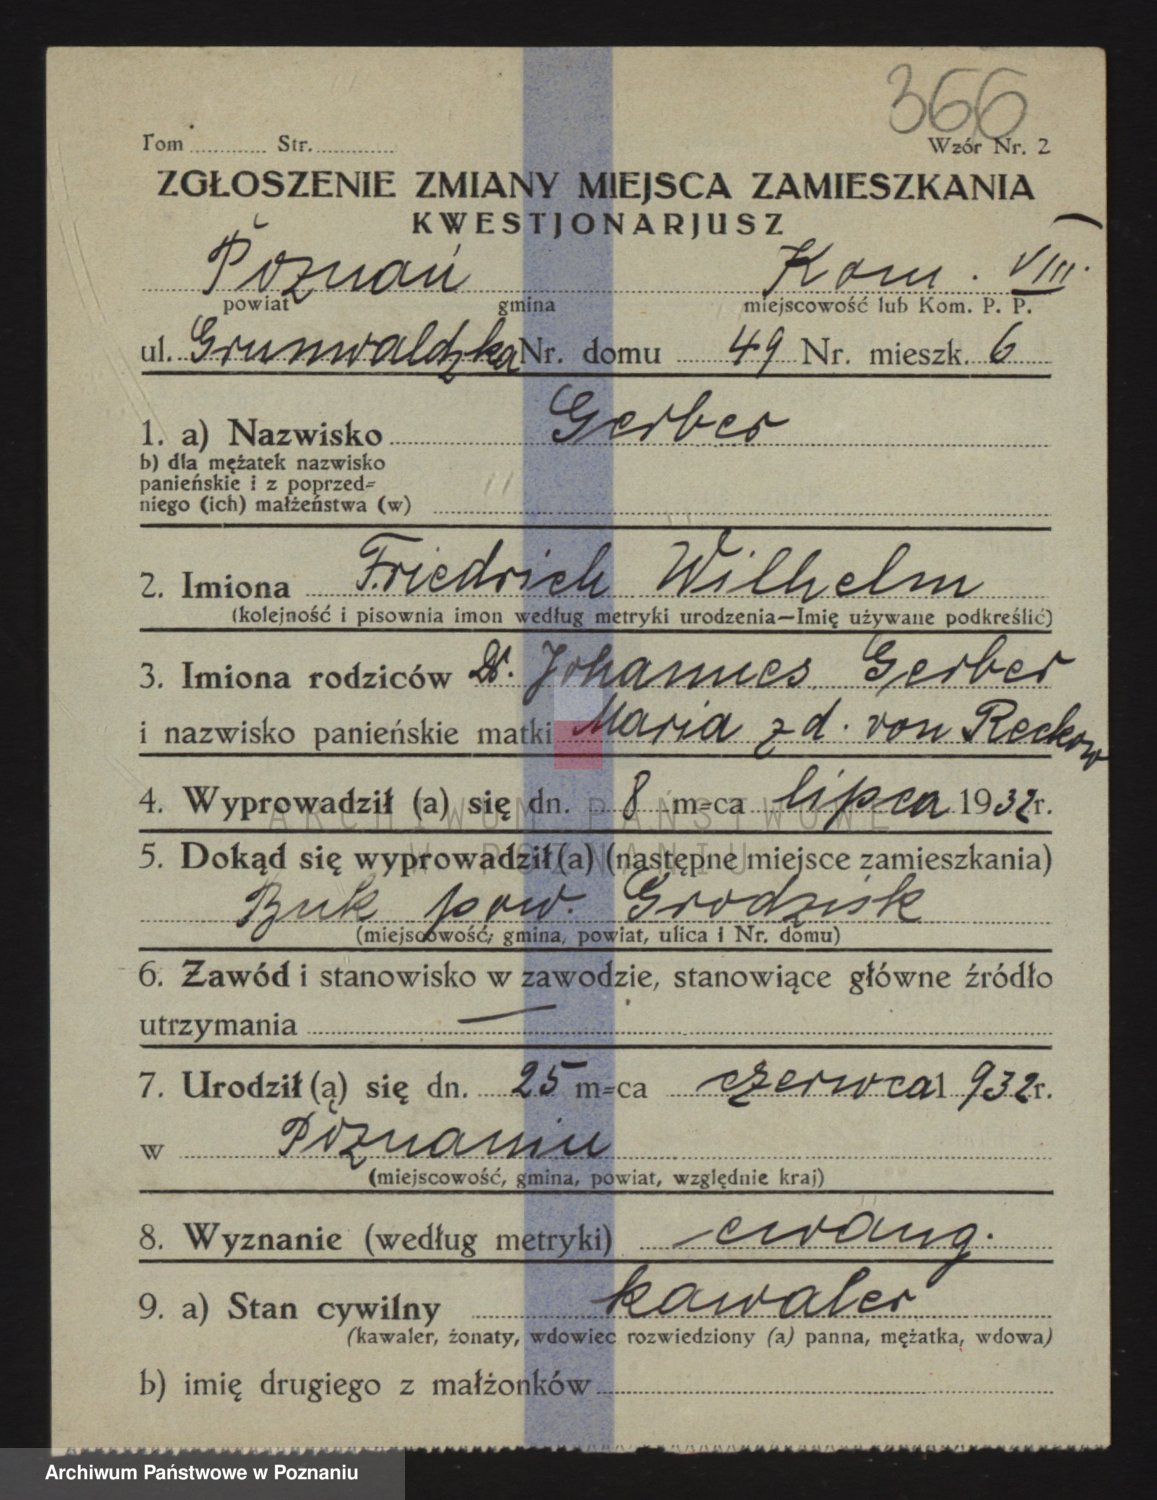 366
Tom ........... Str. ............
Wzór Nr. 2
ZGŁOSZENIE ZMIANY MIEJSCA ZAMIESZKANIA
KWESTJONARJUSZ
Poznań Kom. VIII.
powiat gmina miejscowość lub Kom. P. P.
ul. Grunwaldzka Nr. domu 49 Nr. mieszk. 6
1. a) Nazwisko Gerber
b) dla mężatek nazwisko
panieńskie i z poprzed-
niego (ich) małżeństwa (w)
2. Imiona Friedrich Wilhelm
(kolejność i pisownia imon według metryki urodzenia—Imię używane podkreślić)
3. Imiona rodziców Dr. Johannes Gerber
i nazwisko panieńskie matki Maria z d. von Reckow
4. Wyprowadził (a) się dn. 8 m-ca lipca 1932 r.
ARCHIWUM PAŃSTWOWE
W POZNANIU
5. Dokąd się wyprowadził(a) (następne miejsce zamieszkania)
Buk pow. Grodzisk
(miejscowość, gmina, powiat, ulica i Nr. domu)
6. Zawód i stanowisko w zawodzie, stanowiące główne źródło
utrzymania —
7. Urodził (ą) się dn. 25 m-ca czerwca 1932 r.
w Poznaniu
(miejscowość, gmina, powiat, względnie kraj)
8. Wyznanie (według metryki) ewang.
9. a) Stan cywilny kawaler
(kawaler, żonaty, wdowiec rozwiedziony (a) panna, mężatka, wdowa)
b) imię drugiego z małżonków
Archiwum Państwowe w Poznaniu